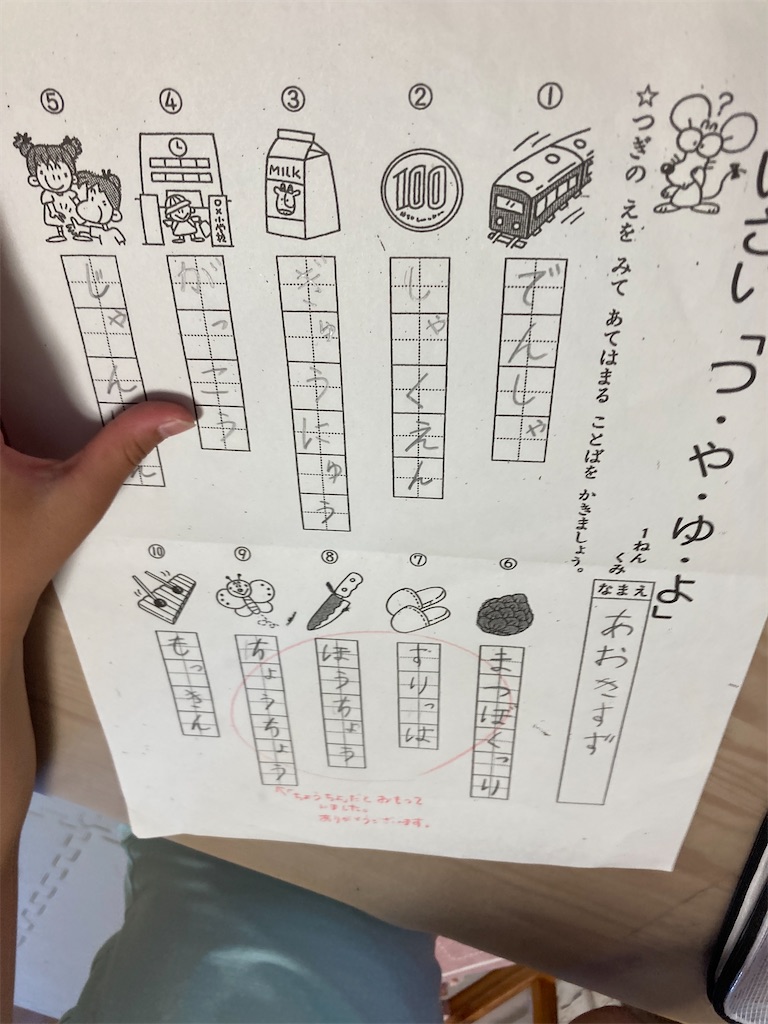 いさい「つ・や・ゆ・よ」
☆つぎの えを みて あてはまる ことばを かきましょう。
1ねん
くみ
なまえ
あおきすず
①
でんしゃ
②
100
しゃくえん
③
MILK
ぎゅうにゅう
④
〇×小学校
がっこう
⑤
じゃん
ん
⑥
まつぼっくり
⑦
すりっぱ
⑧
ほうちょう
⑨
ちょうちょう
⑩
もっきん
ちょうちょだとおもって
いました。
ありがとうございます。